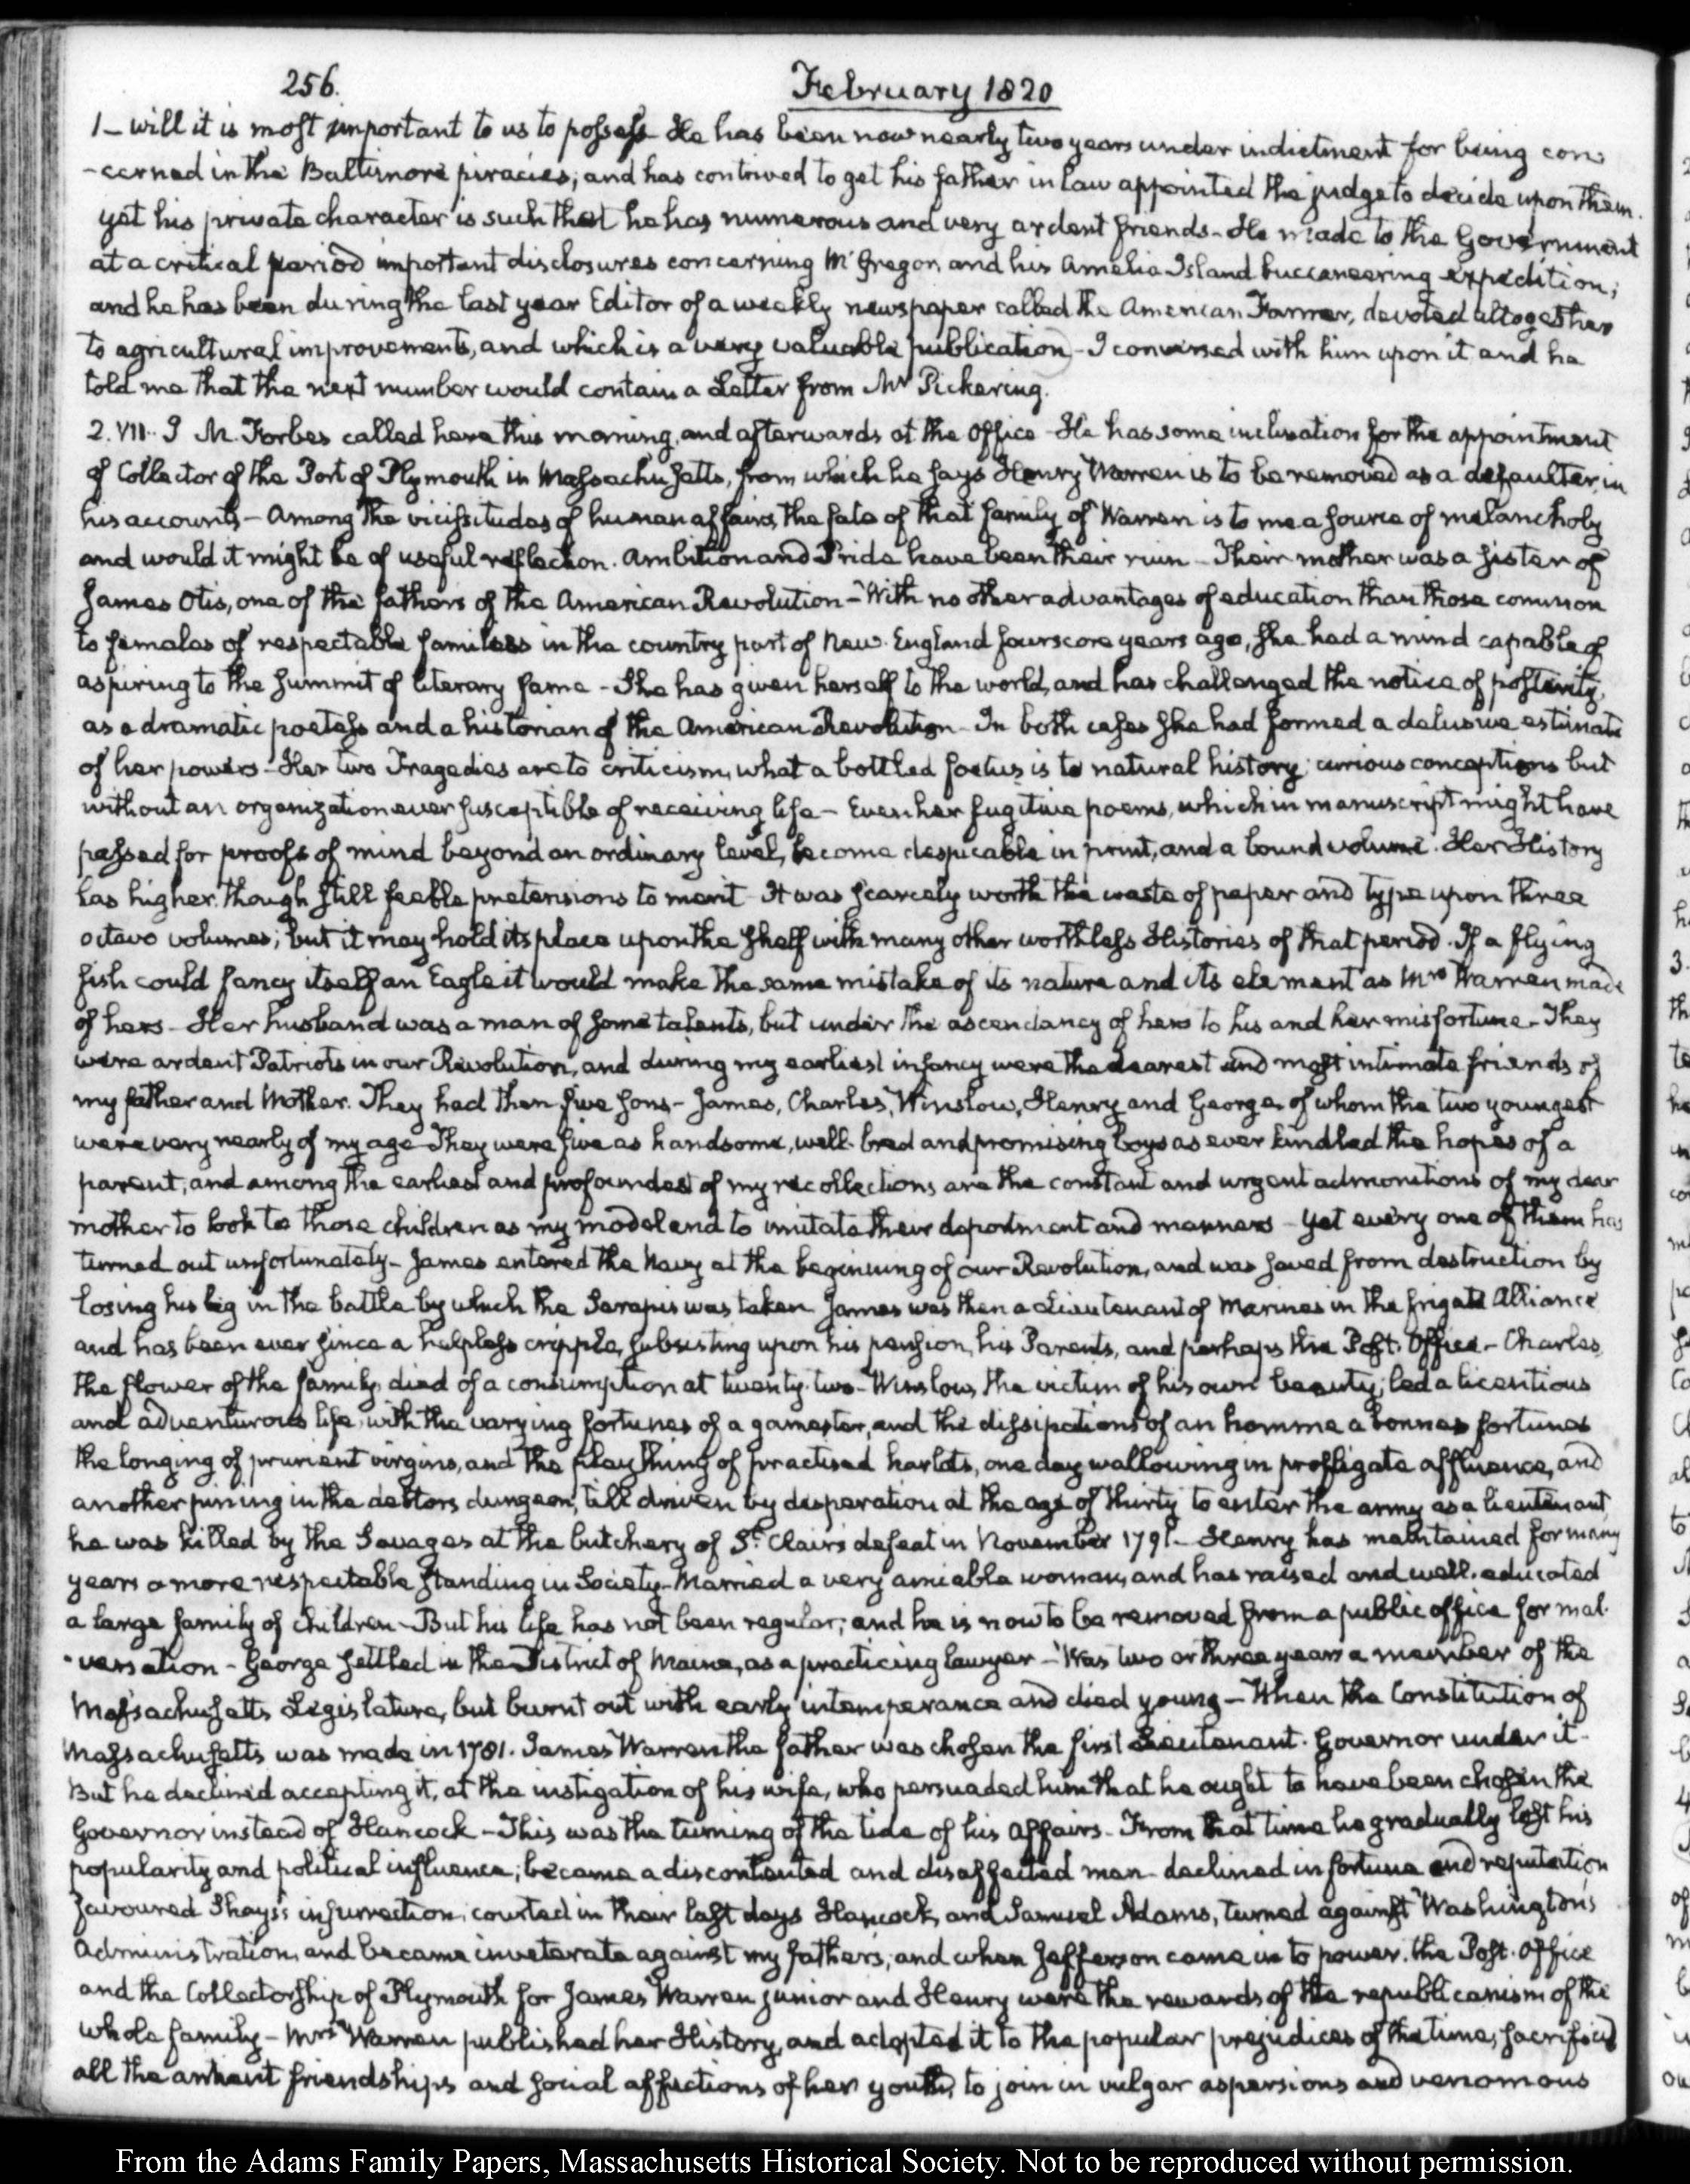 256.
February 1820
1 — will it is most important to us to possess — He has been now nearly two years under indictment for being con
-cerned in the Baltimore piracies; and has contrived to get his father in law appointed the judge to decide upon them.
yet his private character is such that he has numerous and very ardent friends — He made to the Government
at a critical period important disclosures concerning McGregor, and his Amelia Island buccaneering expedition;
and he has been during the last year Editor of a weekly newspaper called the American Farmer, devoted altogether
to agricultural improvements, and which is a very valuable publication — I conversed with him upon it and he
told me that the next number would contain a Letter from Mr Pickering.
2. VII. J M. Forbes called here this morning, and afterwards at the Office — He has some inclination for the appointment
of Collector of the Port of Plymouth in Massachusetts, from which he says Henry Warren is to be removed as a defaulter, in
his accounts — Among the vicissitudes of human affairs, the fate of that family of Warren is to me a source of melancholy
and would it might be of useful reflection. Ambition and Pride have been their ruin — Their mother was a sister of
James Otis, one of the fathers of the American Revolution — With no other advantages of education than those common
to females of respectable families in the country part of New-England fourscore years ago, she had a mind capable of
aspiring to the summit of literary fame — She has given herself to the world, and has challenged the notice of posterity,
as a dramatic poetess and a historian of the American Revolution — In both cases she had formed a delusive estimate
of her powers — Her two Tragedies are to criticism, what a bottled foetus is to natural history; curious conceptions but
without an organization ever susceptible of receiving life — Even her fugitive poems, which in manuscript might have
passed for proofs of mind beyond an ordinary level, become despicable in print, and a bound volume. Her History
has higher though still feeble pretensions to merit — It was scarcely worth the waste of paper and type upon three
octavo volumes; but it may hold its place upon the shelf with many other worthless Histories of that period. If a flying
fish could fancy itself an Eagle it would make the same mistake of its nature and its element as Mrs Warren made
of hers — Her husband was a man of some talents, but under the ascendancy of hers to his and her misfortune — They
were ardent Patriots in our Revolution, and during my earliest infancy were the dearest and most intimate friends of
my father and Mother. They had then five sons — James, Charles, Winslow, Henry and George, of whom the two youngest
were very nearly of my age — They were five as handsome, well-bred and promising boys as ever kindled the hopes of a
parent; and among the earliest and profoundest of my recollections are the constant and urgent admonitions of my dear
mother to look to those children as my model and to imitate their deportment and manners — yet every one of them has
turned out unfortunately — James entered the Navy at the beginning of our Revolution, and was saved from destruction by
losing his leg in the battle by which the Serapis was taken James was then a Lieutenant of Marines in the frigate Alliance
and has been ever since a helpless cripple, subsisting upon his pension, his Parents, and perhaps the Post-Office — Charles,
the flower of the family, died of a consumption at twenty-two — Winslow, the victim of his own beauty; led a licentious
and adventurous life, with the varying fortunes of a gamester, and the dissipations of an homme a bonnes fortunes
the longing of prurient virgins, and the play thing of practised harlots, one day wallowing in profligate affluence, and
another pining in the debtors dungeon, till driven by desperation at the age of thirty to enter the army as a lieutenant,
he was killed by the Savages at the butchery of St Clair's defeat in November 1791 — Henry has maintained for many
years a more respectable standing in Society — Married a very amiable woman, and has raised and well-educated
a large family of children — But his life has not been regular; and he is now to be removed from a public office for mal-
-versation — George settled in the District of Maine, as a practicing lawyer — Was two or three years a member of the
Massachusetts Legislature, but burnt out with early intemperance and died young — When the Constitution of
Massachusetts was made in 1781. James Warren the father was chosen the first Lieutenant-Governor under it —
But he declined accepting it, at the instigation of his wife, who persuaded him that he ought to have been chosen the
Governor instead of Hancock — This was the turning of the tide of his affairs — From that time he gradually lost his
popularity and political influence; became a discontented and disaffected man — declined in fortune and reputation
favoured Shays's insurrection; courted in their last days Hancock, and Samuel Adams, turned against Washington's
Administration, and became inveterate against my father's; and when Jefferson came in to power, the Post-Office
and the Collectorship of Plymouth for James Warren junior and Henry were the rewards of the republicanism of the
whole family — Mrs Warren published her History, and adapted it to the popular prejudices of the time, sacrificed
all the ancient friendships and social affections of her youth, to join in vulgar aspersions and venomous
From the Adams Family Papers, Massachusetts Historical Society. Not to be reproduced without permission.